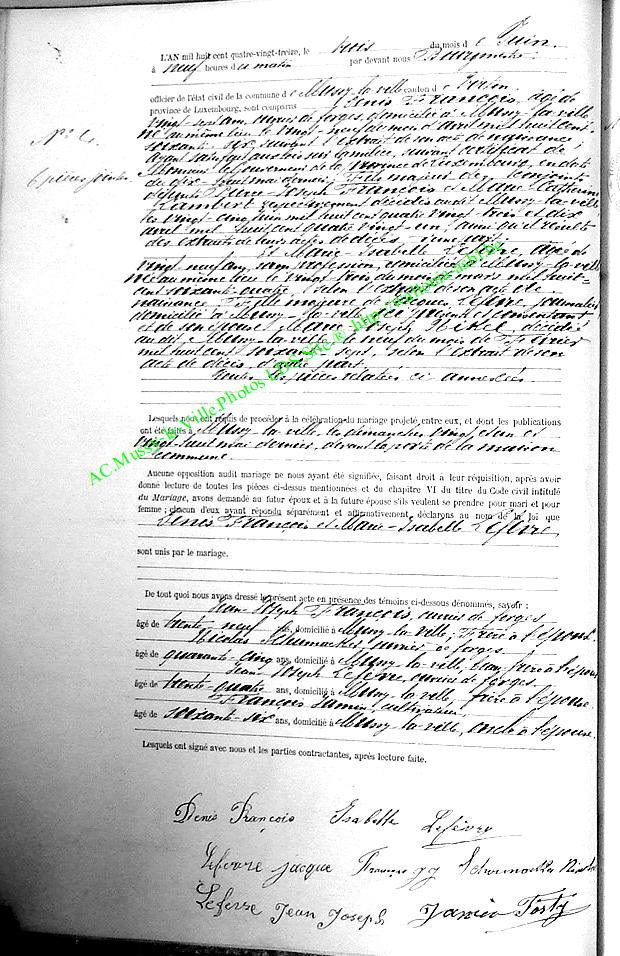 L'AN mil huit cent quatre-vingt-treize, le trois du mois de Juin
à neuf heures du matin par devant nous Bourgmestre
officier de l'état civil de la commune de Mussy-la-ville canton d
province de Luxembourg, sont comparus Denis François, âgé de
vingt-sept ans, ouvrier de forges, domicilié à Mussy-la-ville
né au même lieu le vingt-neuf du mois d'avril mil huit cent
N° 4.
soixante six, suivant l'extrait de son acte de naissance;
ayant satisfait aux lois sur la milice, suivant certificat de
Monsieur le Gouverneur de la province de Luxembourg, en date
6 pièces jointes
du dix-huit mai dernier; Fils majeur des conjoints
défunts Pierre-Joseph François et Marie-Catherine
Lambert respectivement décédés audit Mussy-la-ville
les vingt-cinq juin mil huit cent quatre vingt-trois et dix
avril mil huit cent quatre vingt-un; ainsi qu'il résulte
des extraits de leurs actes de décès, d'une part
Et Marie-Isabelle Lefèvre, âgée de
vingt neuf ans, sans profession, domiciliée à Mussy-la-ville
née au même lieu le vingt-trois du mois de mars mil huit
cent soixante-quatre, selon l'extrait de son acte de
naissance Fille majeure de Jacques Lefèvre, journalier
domicilié à Mussy-la-ville ici présent et consentant
et de son épouse Marie-Joseph décédée
audit Mussy-la-ville le neuf du mois de Février
mil huit cent soixante sept, selon l'extrait de son
acte de décès, d'autre part.
Toutes les pièces relatées ci annexées.
Lesquels nous ont requis de procéder à la célébration du mariage projeté, entre eux, et dont les publications
ont été faites à Mussy-la-ville, les dimanches vingt-et-un et
vingt-huit mai dernier, devant la porte de la maison
commune
Aucune opposition audit mariage ne nous ayant été signifiée, faisant droit à leur réquisition, après avoir
donné lecture de toutes les pièces ci-dessus mentionnées et du chapitre VI du titre du Code civil intitulé
du Mariage, avons demandé au futur époux et à la future épouse s'ils veulent se prendre pour mari et pour
femme; chacun d'eux ayant répondu séparément et affirmativement, déclarons au nom de la loi que
Denis François et Marie-Isabelle Lefèvre
sont unis par le mariage.
De tout quoi nous avons dressé le présent acte en présence des témoins ci-dessous dénommés, savoir :
Jean-Joseph François, ouvrier de forges
âgé de trente-neuf ans, domicilié à Mussy-la-ville, Frère à l'époux
Nicolas Schumacker, ouvrier de forges
âgé de quarante-cinq ans, domicilié à Mussy-la-ville, beau frère à l'époux
Jean-Joseph Lefèvre, ouvrier de forges
âgé de trente-quatre ans, domicilié à Mussy-la-ville, frère à l'épouse
François Jamin, cultivateur,
âgé de soixante-six ans, domicilié à Mussy-la-ville, oncle à l'épouse.
Lesquels ont signé avec nous et les parties contractantes, après lecture faite.
Denis François Isabelle Lefèvre
Lefevre Jacque François JJ Schumacker
Lefevre Jean Joseph
AC.Mussy-la-Ville.Photos LDS Site @ http://